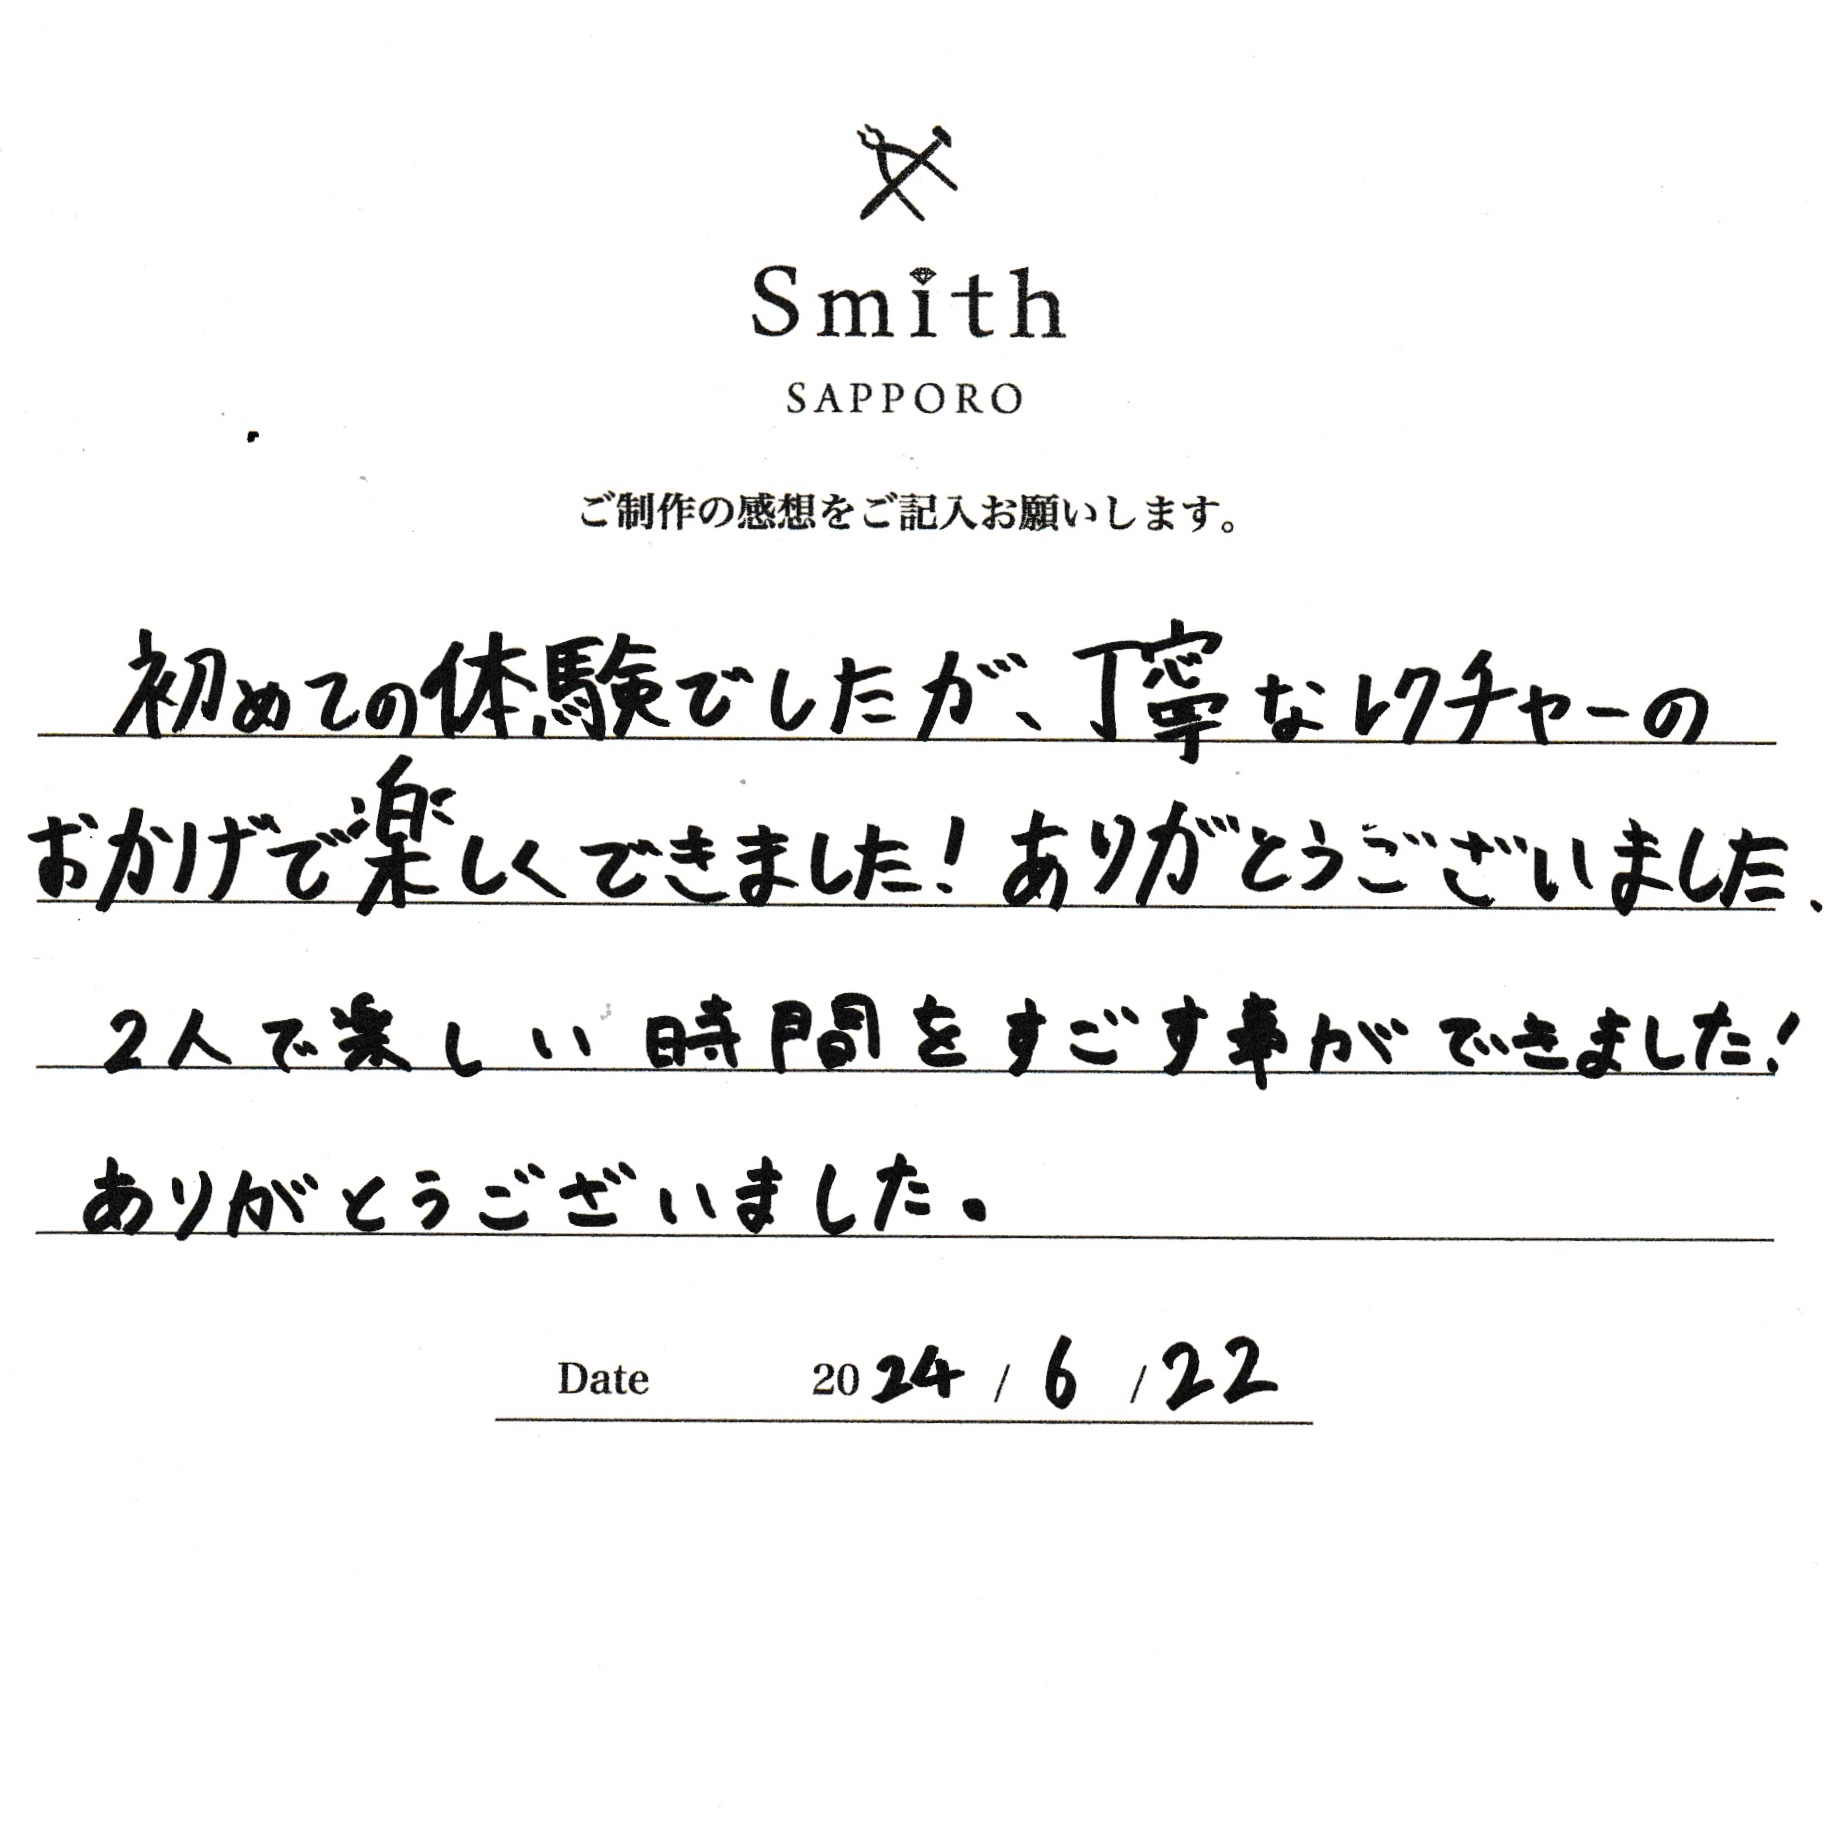 Smith
SAPPORO
ご制作の感想をご記入お願いします。
初めての体験でしたが、丁寧なレクチャーの
おかげで楽しくできました!ありがとうございました、
2人で楽しい時間をすごす事ができました!
ありがとうございました。
Date 2024/6/22